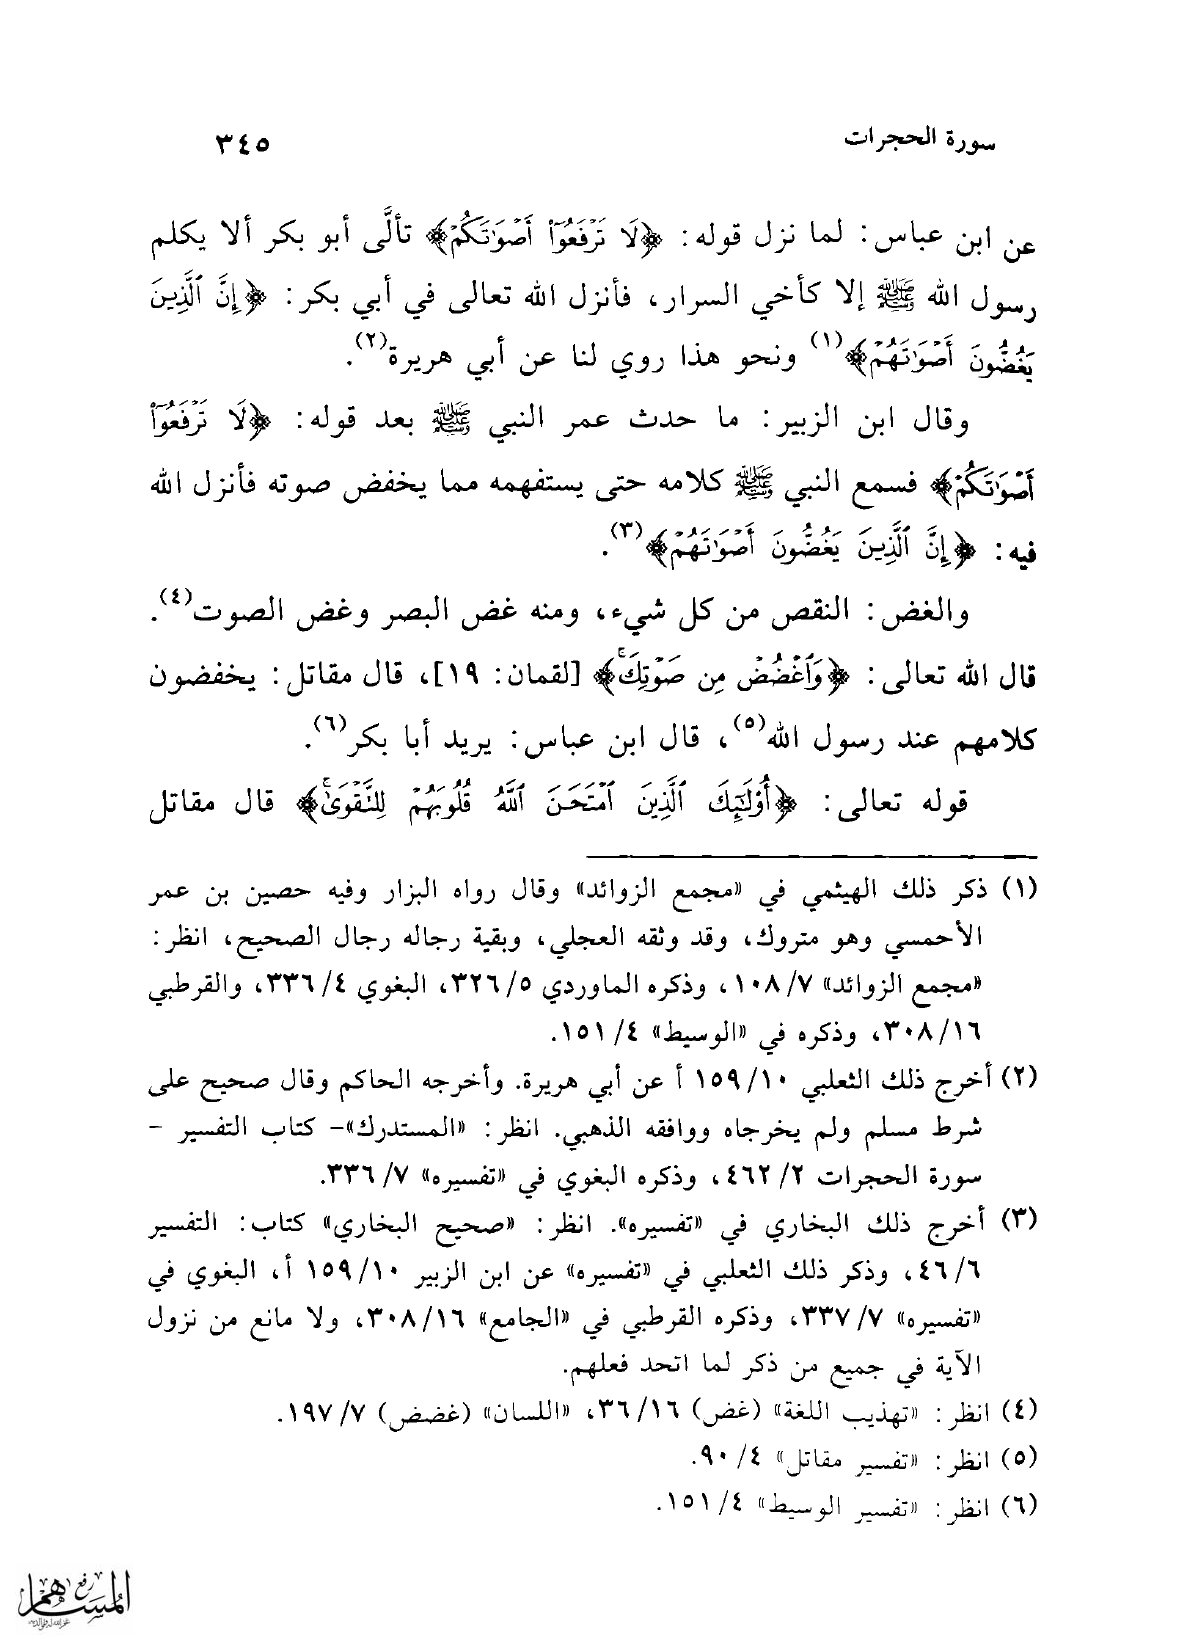 سورة الحجرات
٣٤٥
عن ابن عباس: لما نزل قوله: ﴿لَا تَرْفَعُوٓا۟ أَصْوَٰتَكُمْ﴾ تألَّى أبو بكر ألا يكلم
رسول الله ﷺ إلا كأخي السرار، فأنزل الله تعالى في أبي بكر: ﴿إِنَّ ٱلَّذِينَ
يَغُضُّونَ أَصْوَٰتَهُمْ﴾(١) ونحو هذا روي لنا عن أبي هريرة(٢).
وقال ابن الزبير: ما حدث عمر النبي ﷺ بعد قوله: ﴿لَا تَرْفَعُوٓا۟
أَصْوَٰتَكُمْ﴾ فسمع النبي ﷺ كلامه حتى يستفهمه مما يخفض صوته فأنزل الله
فيه: ﴿إِنَّ ٱلَّذِينَ يَغُضُّونَ أَصْوَٰتَهُمْ﴾(٣).
والغض: النقص من كل شيء، ومنه غض البصر وغض الصوت(٤).
قال الله تعالى: ﴿وَٱغْضُضْ مِن صَوْتِكَ ۚ﴾ [لقمان: ١٩]، قال مقاتل: يخفضون
كلامهم عند رسول الله(٥)، قال ابن عباس: يريد أبا بكر(٦).
قوله تعالى: ﴿أُو۟لَٰٓئِكَ ٱلَّذِينَ ٱمْتَحَنَ ٱللَّهُ قُلُوبَهُمْ لِلتَّقْوَىٰ ۚ﴾ قال مقاتل
(١) ذكر ذلك الهيثمي في «مجمع الزوائد» وقال رواه البزار وفيه حصين بن عمر
الأحمسي وهو متروك، وقد وثقه العجلي، وبقية رجاله رجال الصحيح، انظر:
«مجمع الزوائد» ٧/ ١٠٨، وذكره الماوردي ٥/ ٣٢٦، البغوي ٤/ ٣٣٦، والقرطبي
١٦/ ٣٠٨، وذكره في «الوسيط» ٤/ ١٥١.
(٢) أخرج ذلك الثعلبي ١٠/ ١٥٩ أ عن أبي هريرة. وأخرجه الحاكم وقال صحيح على
شرط مسلم ولم يخرجاه ووافقه الذهبي. انظر: «المستدرك»- كتاب التفسير -
سورة الحجرات ٢/ ٤٦٢، وذكره البغوي في «تفسيره» ٧/ ٣٣٦.
(٣) أخرج ذلك البخاري في «تفسيره». انظر: «صحيح البخاري» كتاب: التفسير
٦/ ٤٦، وذكر ذلك الثعلبي في «تفسيره» عن ابن الزبير ١٠/ ١٥٩ أ، البغوي في
«تفسيره» ٧/ ٣٣٧، وذكره القرطبي في «الجامع» ١٦/ ٣٠٨، ولا مانع من نزول
الآية في جميع من ذكر لما اتحد فعلهم.
(٤) انظر: «تهذيب اللغة» (غض) ١٦/ ٣٦، «اللسان» (غضض) ٧/ ١٩٧.
(٥) انظر: «تفسير مقاتل» ٤/ ٩٠.
(٦) انظر: «تفسير الوسيط» ٤/ ١٥١.